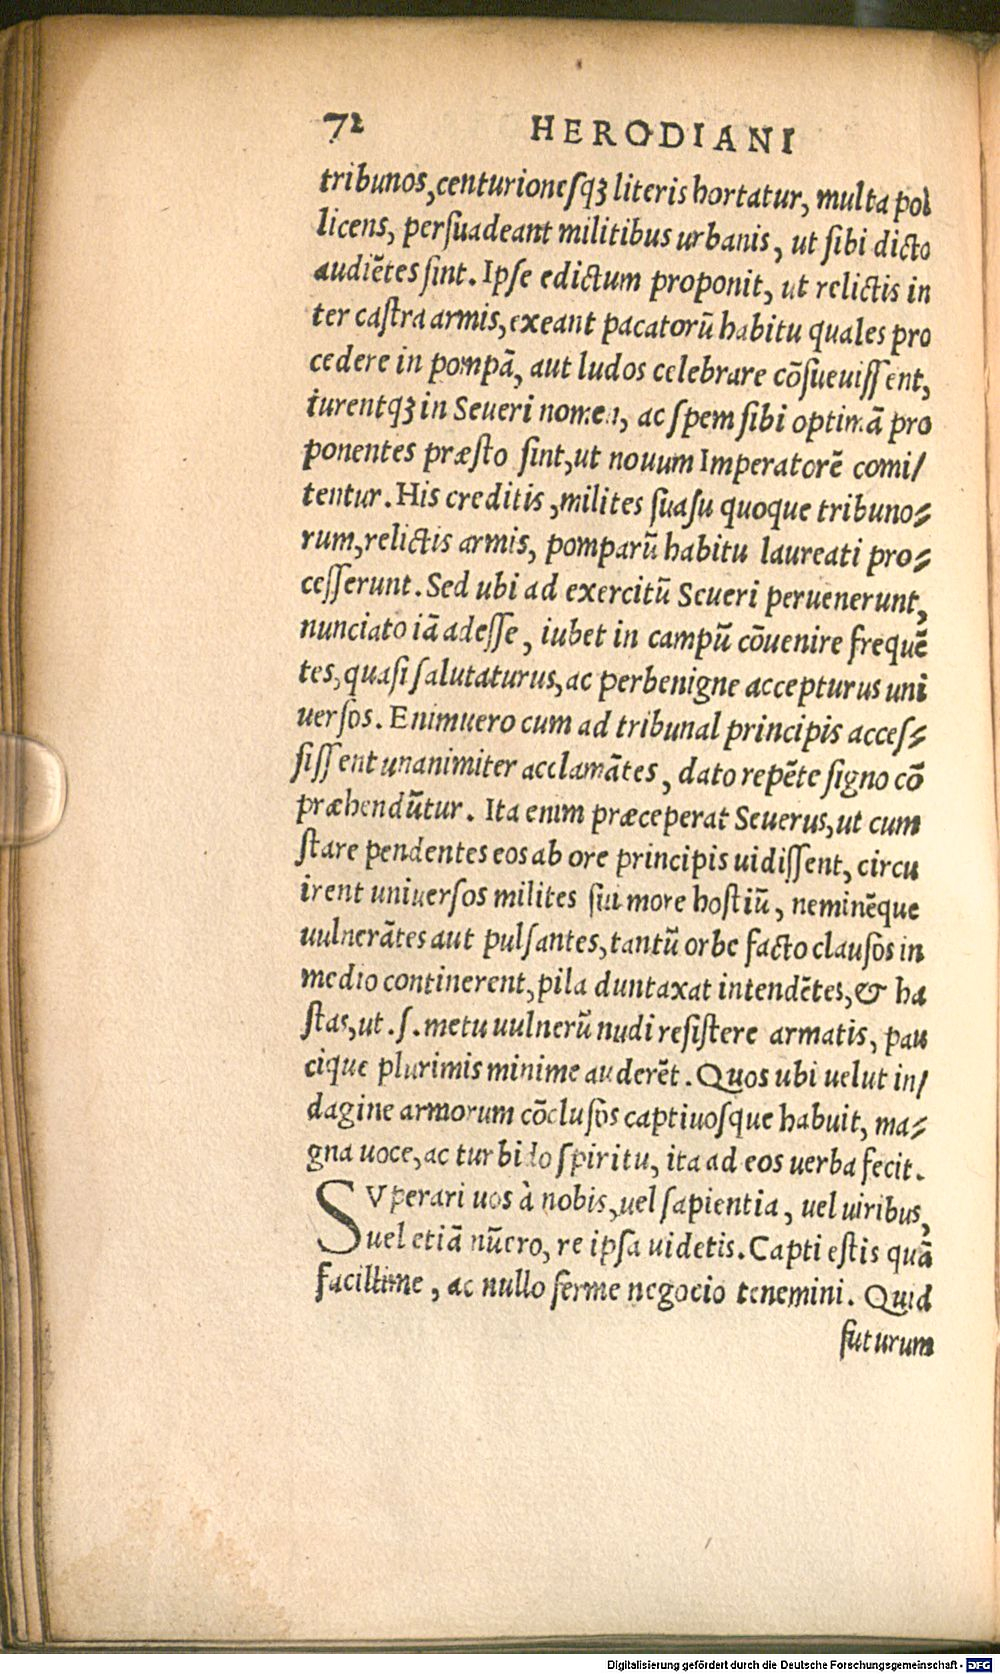 72 HERODIANI
tribunos, centurionesqꝫ literis hortatur, multa pol
licens, persuadeant militibus urbanis, ut sibi dicto
audiētes sint. Ipse edictum proponit, ut relictis in
ter castra armis, exeant pacatorū habitu quales pro
cedere in pompā, aut ludos celebrare cōsueuissent,
iurentqꝫ in Seueri nomen, ac spem sibi optimā pro
ponentes præsto sint, ut nouum Imperatorē comi/
tentur. His creditis, milites suasu quoque tribuno⸗
rum, relictis armis, pomparū habitu laureati pro⸗
cesserunt. Sed ubi ad exercitū Seueri peruenerunt,
nunciato iā adesse, iubet in campū cōuenire frequē
tes, quasi salutaturus, ac perbenigne accepturus uni
uersos. Enimuero cum ad tribunal principis acces⸗
sissent unanimiter acclamātes, dato repēte signo cō
præhendūtur. Ita enim præceperat Seuerus, ut cum
stare pendentes eos ab ore principis uidissent, circu
irent uniuersos milites sui more hostiū, neminēque
uulnerātes aut pulsantes, tantū orbe facto clausos in
medio continerent, pila duntaxat intendētes, & ha
stas, ut .s. metu uulnerū nudi resistere armatis, pau
cique plurimis minime auderēt. Quos ubi uelut in/
dagine armorum cōclusos captiuosque habuit, ma⸗
gna uoce, ac turbido spiritu, ita ad eos uerba fecit.
SVperari uos à nobis, uel sapientia, uel uiribus,
uel etiā nūero, re ipsa uidetis. Capti estis quā
facillime, ac nullo ferme negocio tenemini. Quid
futurum
Digitalisierung gefördert durch die Deutsche Forschungsgemeinschaft - DFG